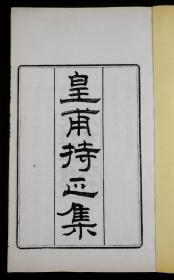 皇甫持正集